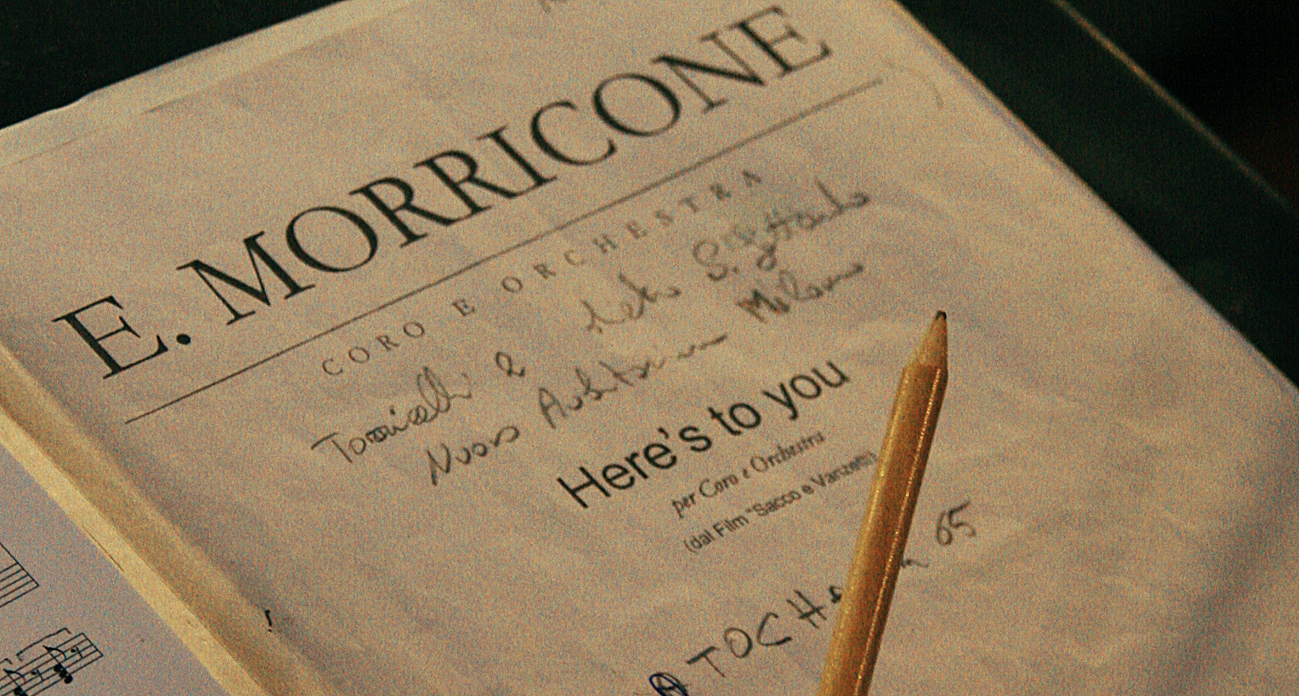 E. MORRICONE
CORO E ORCHESTRA
Torricelli 2
Nuovo Milano
Here's to you
per Coro e Orchestra
(dal Film "Sacco e Vanzetti)
ATOCHA 65